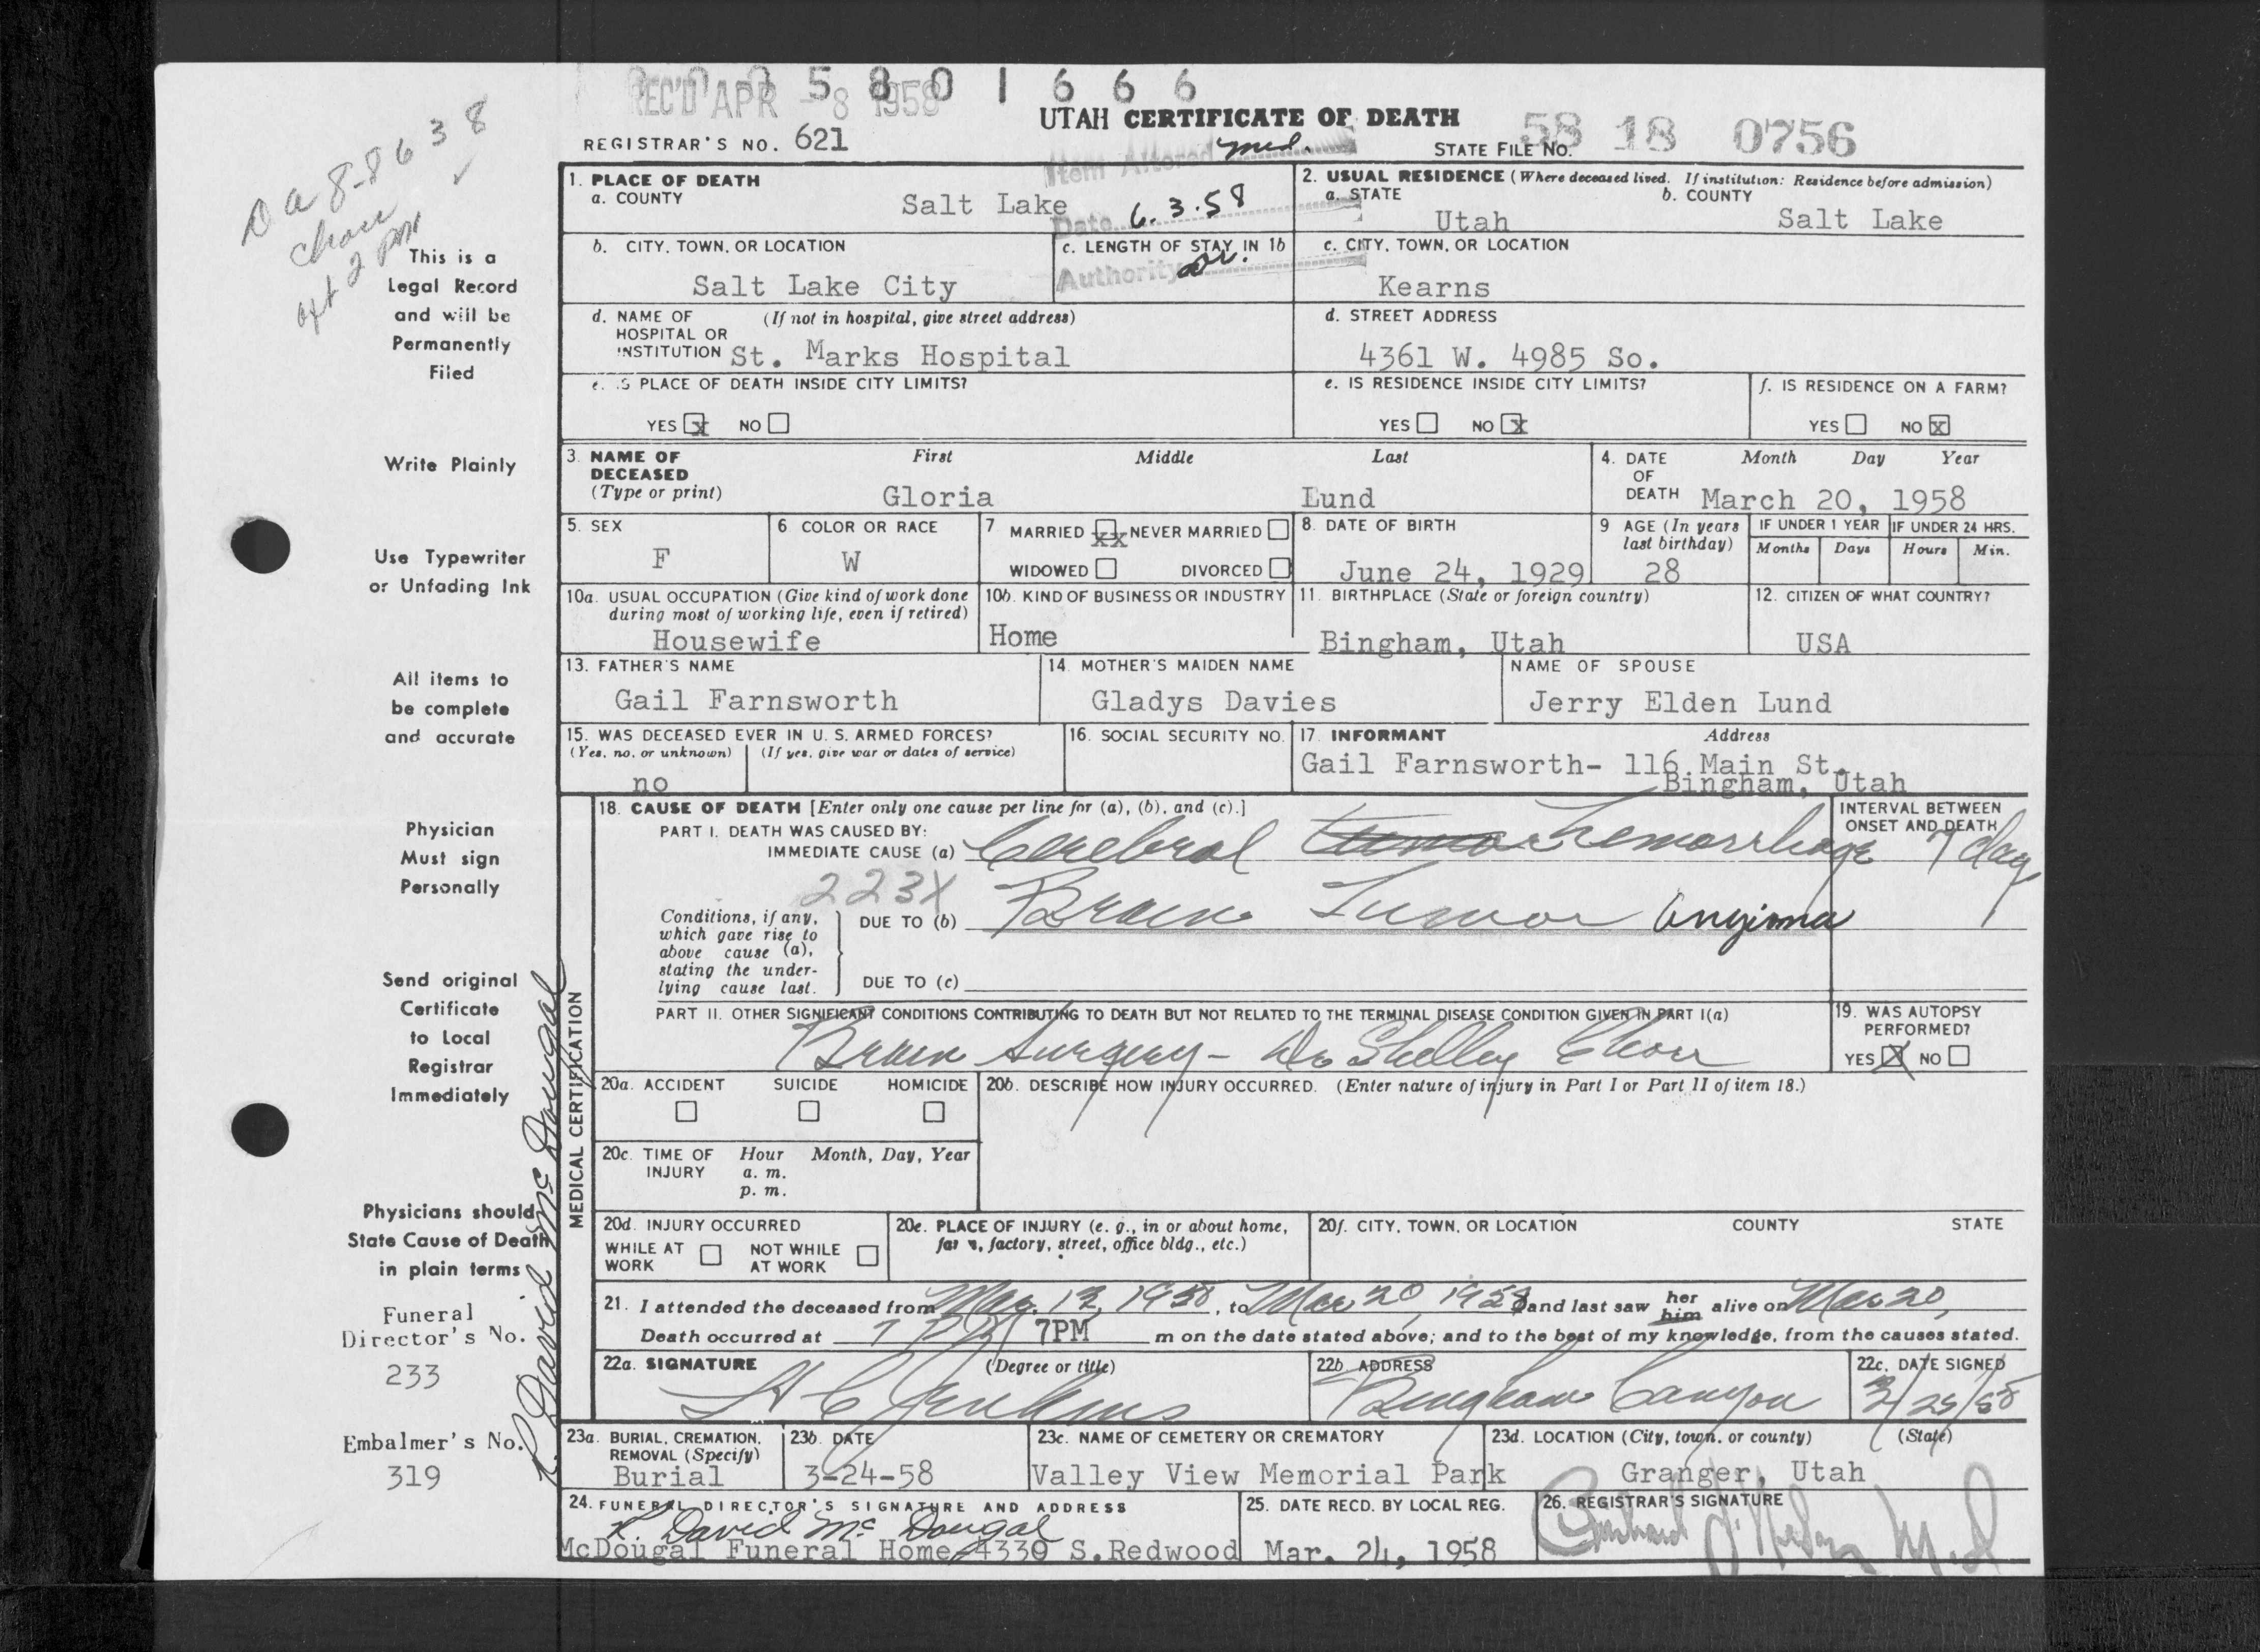 REC'D APR - 8 1958
5 8 0 1 6 6 6
UTAH CERTIFICATE OF DEATH
REGISTRAR'S NO. 621
STATE FILE NO. 58 18 0756
Item Altered med.
Date 6.3.58
Authority
1. PLACE OF DEATH
a. COUNTY
Salt Lake
2. USUAL RESIDENCE (Where deceased lived. If institution: Residence before admission)
a. STATE
Utah
b. COUNTY
Salt Lake
b. CITY, TOWN, OR LOCATION
Salt Lake City
c. LENGTH OF STAY IN 1b
c. CITY, TOWN, OR LOCATION
Kearns
d. NAME OF HOSPITAL OR INSTITUTION (If not in hospital, give street address)
St. Marks Hospital
d. STREET ADDRESS
4361 W. 4985 So.
e. IS PLACE OF DEATH INSIDE CITY LIMITS?
YES x NO
e. IS RESIDENCE INSIDE CITY LIMITS?
YES NO x
f. IS RESIDENCE ON A FARM?
YES NO x
3. NAME OF DECEASED (Type or print)
First Middle Last
Gloria Lund
4. DATE OF DEATH
Month Day Year
March 20, 1958
5. SEX
F
6 COLOR OR RACE
W
7 MARRIED xx NEVER MARRIED
WIDOWED DIVORCED
8. DATE OF BIRTH
June 24, 1929
9 AGE (In years last birthday)
28
IF UNDER 1 YEAR
Months Days
IF UNDER 24 HRS.
Hours Min.
10a. USUAL OCCUPATION (Give kind of work done during most of working life, even if retired)
Housewife
10b. KIND OF BUSINESS OR INDUSTRY
Home
11. BIRTHPLACE (State or foreign country)
Bingham, Utah
12. CITIZEN OF WHAT COUNTRY?
USA
13. FATHER'S NAME
Gail Farnsworth
14. MOTHER'S MAIDEN NAME
Gladys Davies
NAME OF SPOUSE
Jerry Elden Lund
15. WAS DECEASED EVER IN U. S. ARMED FORCES?
(Yes, no, or unknown) (If yes, give war or dates of service)
no
16. SOCIAL SECURITY NO.
17. INFORMANT Address
Gail Farnsworth- 116 Main St.
Bingham, Utah
MEDICAL CERTIFICATION
18. CAUSE OF DEATH [Enter only one cause per line for (a), (b), and (c).]
INTERVAL BETWEEN ONSET AND DEATH
PART I. DEATH WAS CAUSED BY:
IMMEDIATE CAUSE (a) Cerebral hemorrhage 7 day
223X
Conditions, if any, which gave rise to above cause (a), stating the underlying cause last.
DUE TO (b) Brain Tumor Angioma
DUE TO (c)
PART II. OTHER SIGNIFICANT CONDITIONS CONTRIBUTING TO DEATH BUT NOT RELATED TO THE TERMINAL DISEASE CONDITION GIVEN IN PART I(a)
Brain Surgery - Dr Shelley Chou
19. WAS AUTOPSY PERFORMED?
YES X NO
20a. ACCIDENT SUICIDE HOMICIDE
20b. DESCRIBE HOW INJURY OCCURRED. (Enter nature of injury in Part I or Part II of item 18.)
20c. TIME OF INJURY Hour Month, Day, Year
a. m.
p. m.
20d. INJURY OCCURRED
WHILE AT WORK NOT WHILE AT WORK
20e. PLACE OF INJURY (e. g., in or about home, farm, factory, street, office bldg., etc.)
20f. CITY, TOWN, OR LOCATION COUNTY STATE
21. I attended the deceased from Mar. 13, 1958, to Mar 20, 1958 and last saw her him alive on Mar 20,
Death occurred at 7 PM 7PM m on the date stated above; and to the best of my knowledge, from the causes stated.
22a. SIGNATURE (Degree or title)
H C Jenkins
22b. ADDRESS
Bingham Canyon
22c. DATE SIGNED
3/25/58
23a. BURIAL, CREMATION, REMOVAL (Specify)
Burial
23b. DATE
3-24-58
23c. NAME OF CEMETERY OR CREMATORY
Valley View Memorial Park
23d. LOCATION (City, town, or county) (State)
Granger, Utah
24. FUNERAL DIRECTOR'S SIGNATURE AND ADDRESS
R. David McDougal
McDougal Funeral Home, 4330 S.Redwood
25. DATE RECD. BY LOCAL REG.
Mar. 24, 1958
26. REGISTRAR'S SIGNATURE
M.D
Da 8-8638
Chou
This is a
Legal Record
and will be
Permanently
Filed
Write Plainly
Use Typewriter
or Unfading Ink
All items to
be complete
and accurate
Physician
Must sign
Personally
Send original
Certificate
to Local
Registrar
Immediately
Physicians should
State Cause of Death
in plain terms
Funeral
Director's No.
233
Embalmer's No.
319
R David McDougal